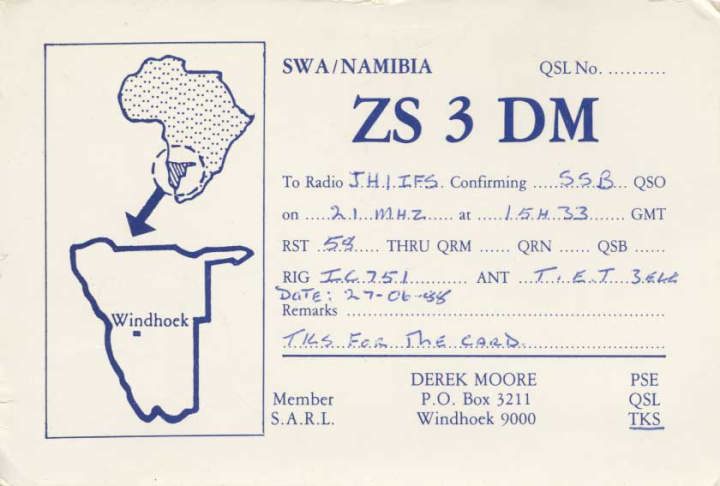 SWA/NAMIBIA QSL No. ..........
ZS 3 DM
To Radio J.H.1.IFS. Confirming .....S.S.B... QSO
on .....21 MHZ..... at .....15H.33....... GMT
RST .58..... THRU QRM ...... QRN ...... QSB ......
RIG I.C.751........... ANT ..T.E.T 3ELE
DATE: 27-06-88
Remarks ..........................................
TKS FOR THE CARD.
Windhoek
DEREK MOORE PSE
Member P.O. Box 3211 QSL
S.A.R.L. Windhoek 9000 TKS